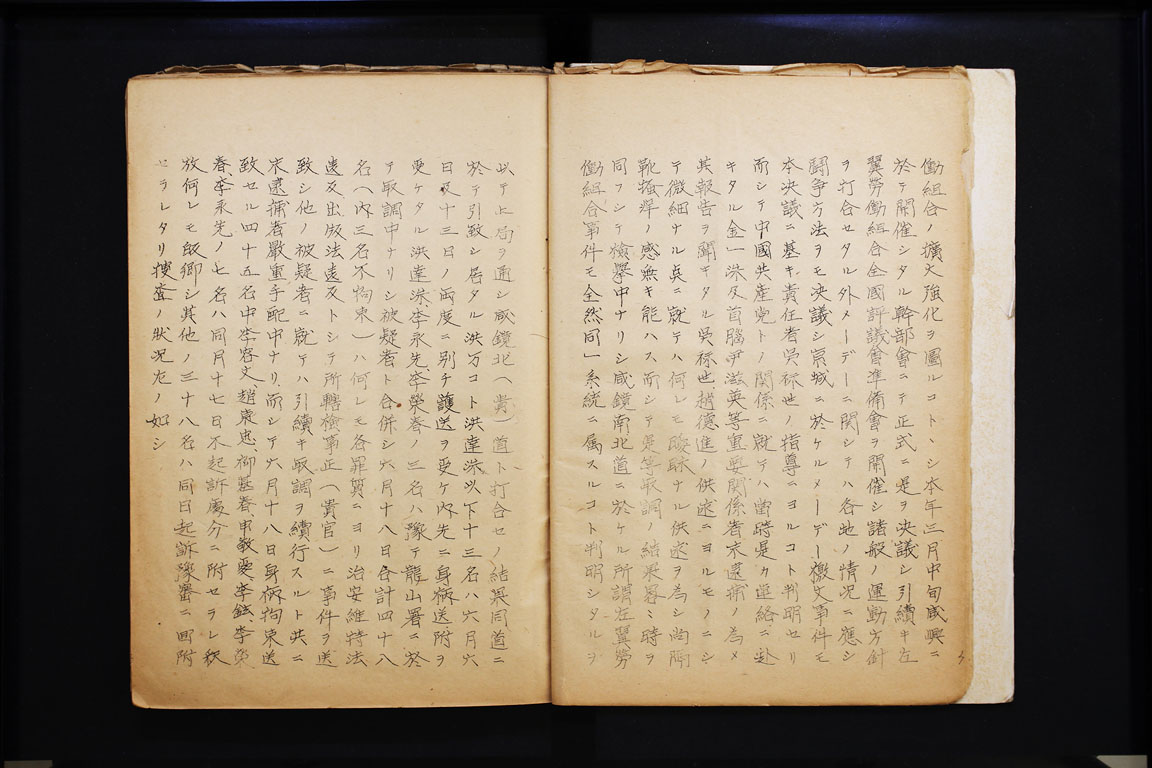 働組合ノ擴大強化ヲ圖ルコトヽシ本年三月中旬咸興ニ
於テ開催シタル幹部會ニテ正式ニ是ヲ決議シ引續キ左
翼勞働組合全國評議會準備會ヲ開催シ諸般ノ運動方針
ヲ打合セタル外メーデーニ関シテハ各地ノ情况ニ應シ
鬪争方法ヲモ決議シ京城ニ於ケルメーデー檄文事件モ
本決議ニ基キ責任者呉祿世ノ指導ニヨルコト判明セリ
而シテ中國共産党トノ関係ニ就テハ當時是カ連絡ニ赴
キタル金一洙及首腦尹滋英等重要関係者未逮捕ノ為メ
其報告ヲ聞キタル呉祿世、趙德進ノ供述ニヨルモノニシ
テ微細ナル点ニ就テハ何レモ曖昧ナル供述ヲ為シ尚隔
靴掻痒ノ感無キ能ハス而シテ是等取調ノ結果畧ミ時ヲ
同フシテ檢擧中ナリシ咸鏡南北道ニ於ケル所謂左翼勞
働組合事件モ全然同一系統ニ属スルコト判明シタルヲ
以テ上局ヲ通シ咸鏡北(貴)道ト打合セノ結果同道ニ
於テ引致シ居タル洪万コト洪達洙以下十三名ハ六月六
日及十三日ノ両度ニ別チ護送ヲ受ケ内先ニ身柄送附ヲ
受ケタル洪達洙、李永先、李榮春ノ三名ハ豫テ龍山署ニ於
テ取調中ナリシ被疑者ト合併シ六月十八日合計四十八
名(内三名不拘束)ハ何レモ各罪質ニヨリ治安維持法
違反、出版法違反トシテ所轄検事正(貴官)ニ事件ヲ送
致シ他ノ被疑者ニ就テハ引續キ取調ヲ續行スルト共ニ
未逮捕者嚴重手配中ナリ、而シテ六月十八日身柄拘束送
致セル四十五名中李容文、趙衷忠、御基春、申敬雯、李鉉、李榮
春、李永先ノ七名ハ同月十七日不起訴處分ニ附セラレ釈
放何レモ皈郷シ其他ノ三十八名ハ同日起訴豫審ニ回附
セラレタリ捜査ノ状况左ノ如シ